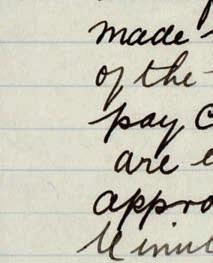 made
of the
pay
are
appro